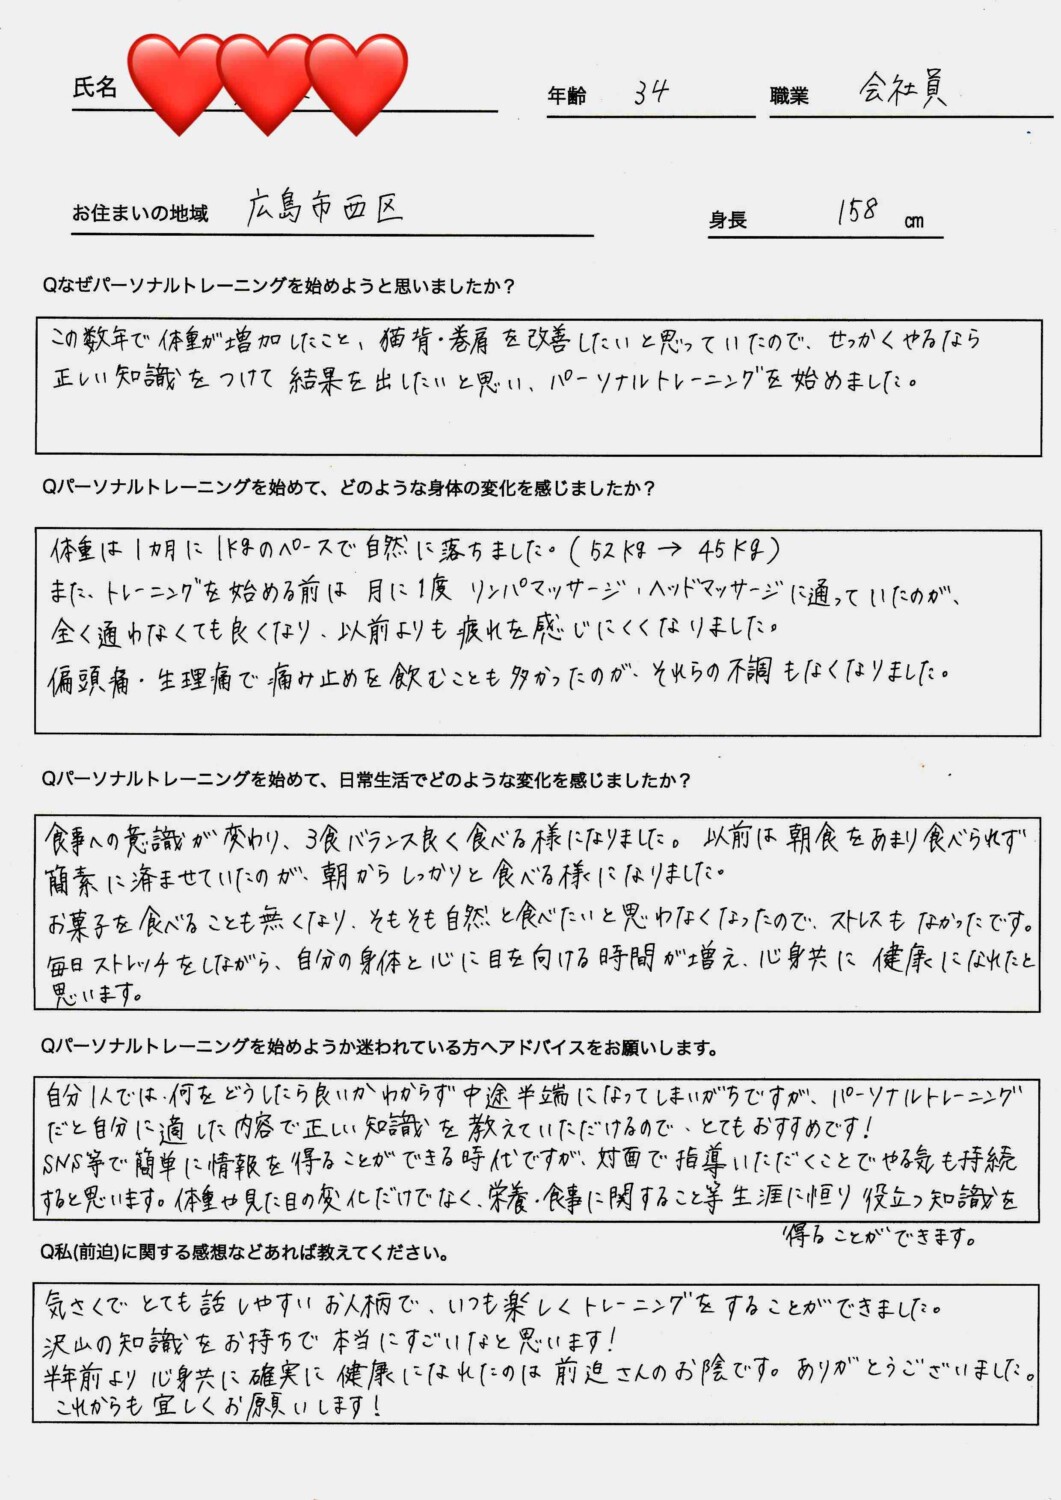 氏名
年齢 34 職業 会社員
お住まいの地域 広島市西区 身長 158 cm
Qなぜパーソナルトレーニングを始めようと思いましたか？
この数年で体重が増加したこと、猫背・巻肩を改善したいと思っていたので、せっかくやるなら
正しい知識をつけて結果を出したいと思い、パーソナルトレーニングを始めました。
Qパーソナルトレーニングを始めて、どのような身体の変化を感じましたか？
体重は1カ月に1kgのペースで自然に落ちました。(52kg→45kg)
また、トレーニングを始める前は月に1度リンパマッサージ・ヘッドマッサージに通っていたのが、
全く通わなくても良くなり、以前よりも疲れを感じにくくなりました。
偏頭痛・生理痛で痛み止めを飲むことも多かったのが、それらの不調もなくなりました。
Qパーソナルトレーニングを始めて、日常生活でどのような変化を感じましたか？
食事への意識が変わり、3食バランス良く食べる様になりました。以前は朝食をあまり食べられず
簡素に済ませていたのが、朝からしっかりと食べる様になりました。
お菓子を食べることも無くなり、そもそも自然と食べたいと思わなくなったので、ストレスもなかったです。
毎日ストレッチをしながら、自分の身体と心に目を向ける時間が増え、心身共に健康になれたと
思います。
Qパーソナルトレーニングを始めようか迷われている方へアドバイスをお願いします。
自分1人では、何をどうしたら良いかわからず中途半端になってしまいがちですが、パーソナルトレーニング
だと自分に適した内容で正しい知識を教えていただけるので、とてもおすすめです！
SNS等で簡単に情報を得ることができる時代ですが、対面で指導いただくことでやる気も持続
すると思います。体重や見た目の変化だけでなく、栄養・食事に関すること等生涯に恒り役立つ知識を
得ることができます。
Q私(前迫)に関する感想などあれば教えてください。
気さくでとても話しやすいお人柄で、いつも楽しくトレーニングをすることができました。
沢山の知識をお持ちで本当にすごいなと思います！
半年前より心身共に確実に健康になれたのは前迫さんのお陰です。ありがとうございました。
これからも宜しくお願いします！